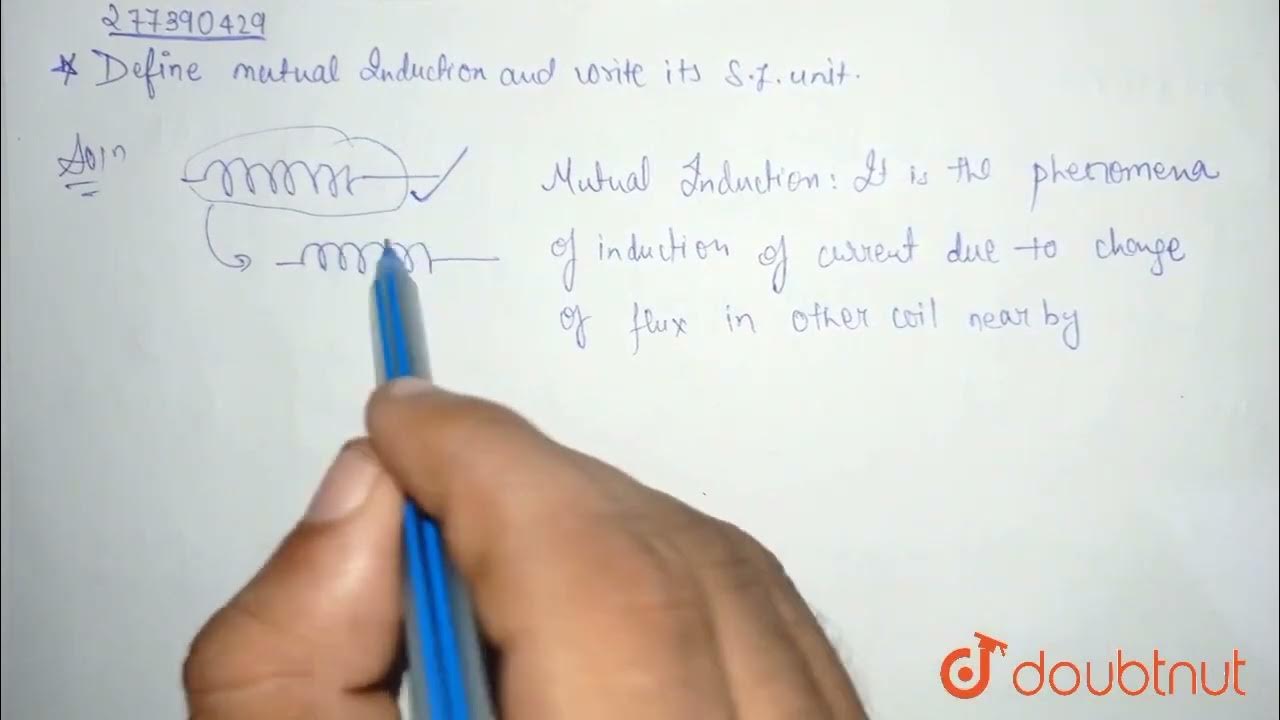 277390429
* Define mutual Induction and write its S.I. unit.
Soln
Mutual Induction: It is the phenomena
of induction of current due to change
of flux in other coil near by
doubtnut